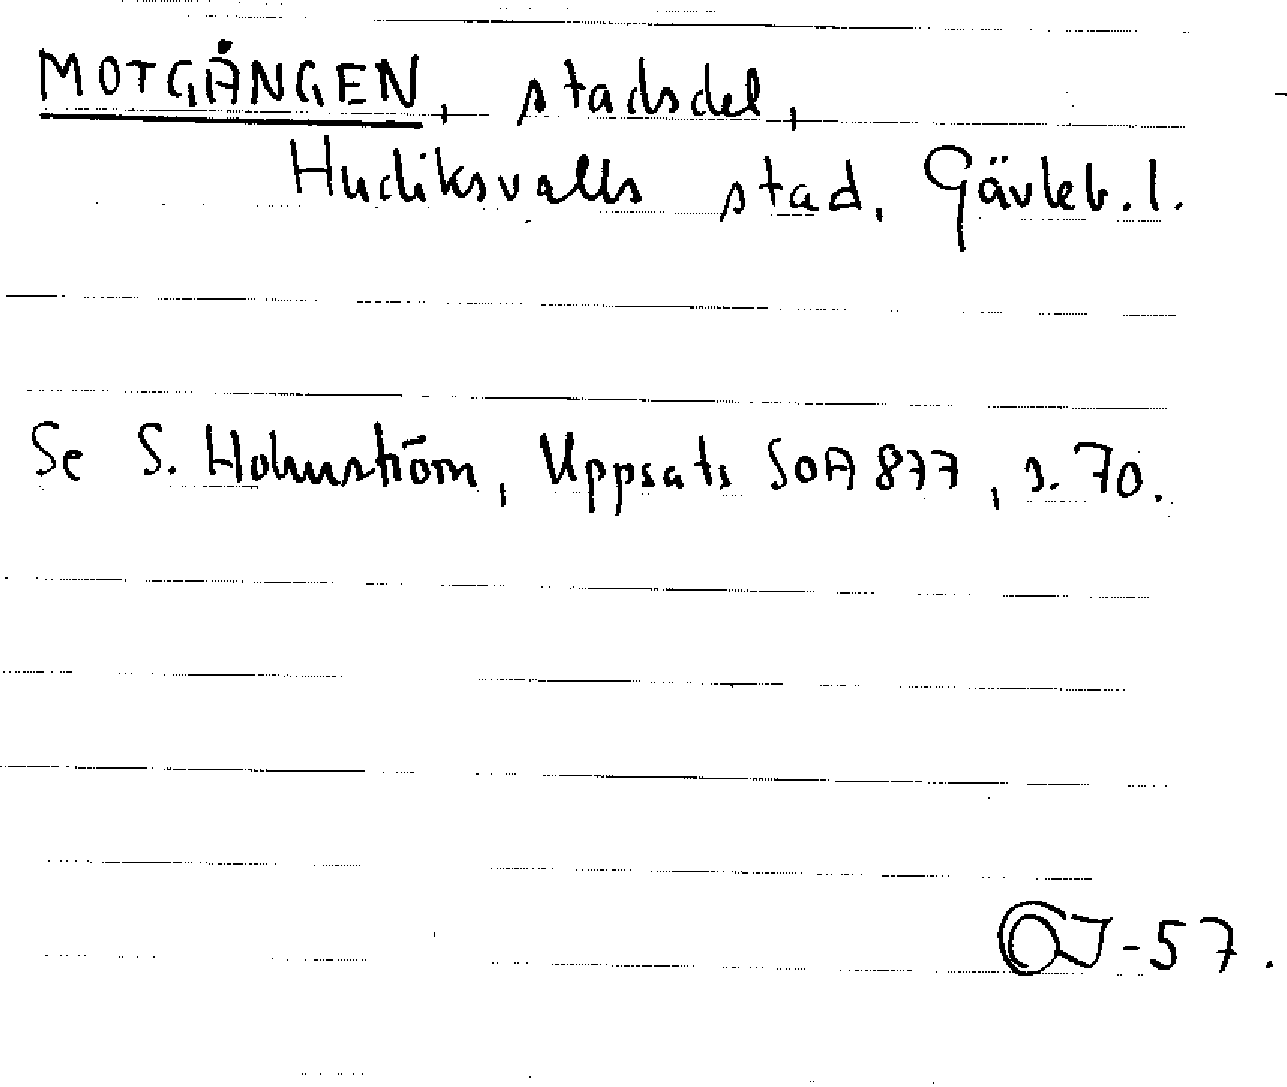 MOTGÅNGEN, stadsdel,
Hudiksvalls stad, Gävleb. l.
Se S. Holmström, Uppsats SOA 877, s. 70.
-57.